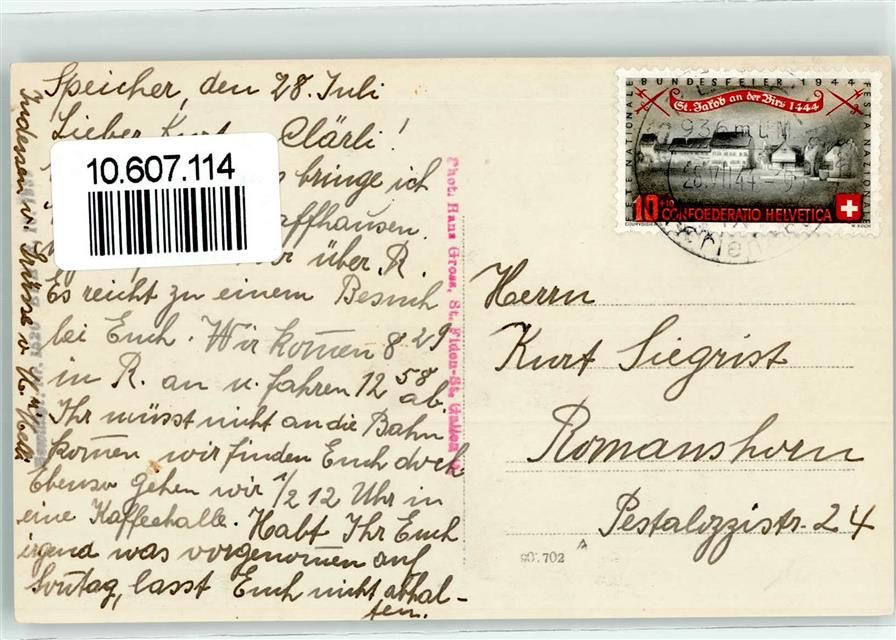 Speicher, den 28. Juli
Lieber Kurt Clärli!
10.607.114
bringe ich
affhausen.
über R.
Es reicht zu einem Besuch
bei Euch. Wir kom̄en 8 29
in R. an u. fahren 12 58 ab.
Ihr müsst nicht an die Bahn
kom̄en wir finden Euch doch
Ebenso gehen wir 1/2 12 Uhr in
eine Kaffeehalle. Habt Ihr Euch
irgend was vorgenom̄en auf
Son̄tag, lasst Euch nicht abhal-
ten.
Indessen v. Grüsse v.
Phot. Hans Gross, St. Fiden-St. Gallen
BUNDESFEIER 1944
FÊTE NATIONALE
FESTA NAZIONALE
St. Jakob an der Birs 1444
28.VII44
10+10 CONFOEDERATIO HELVETICA
COURVOISIER
Herrn
Kurt Siegrist
Romanshorn
Pestalozzistr. 24
702